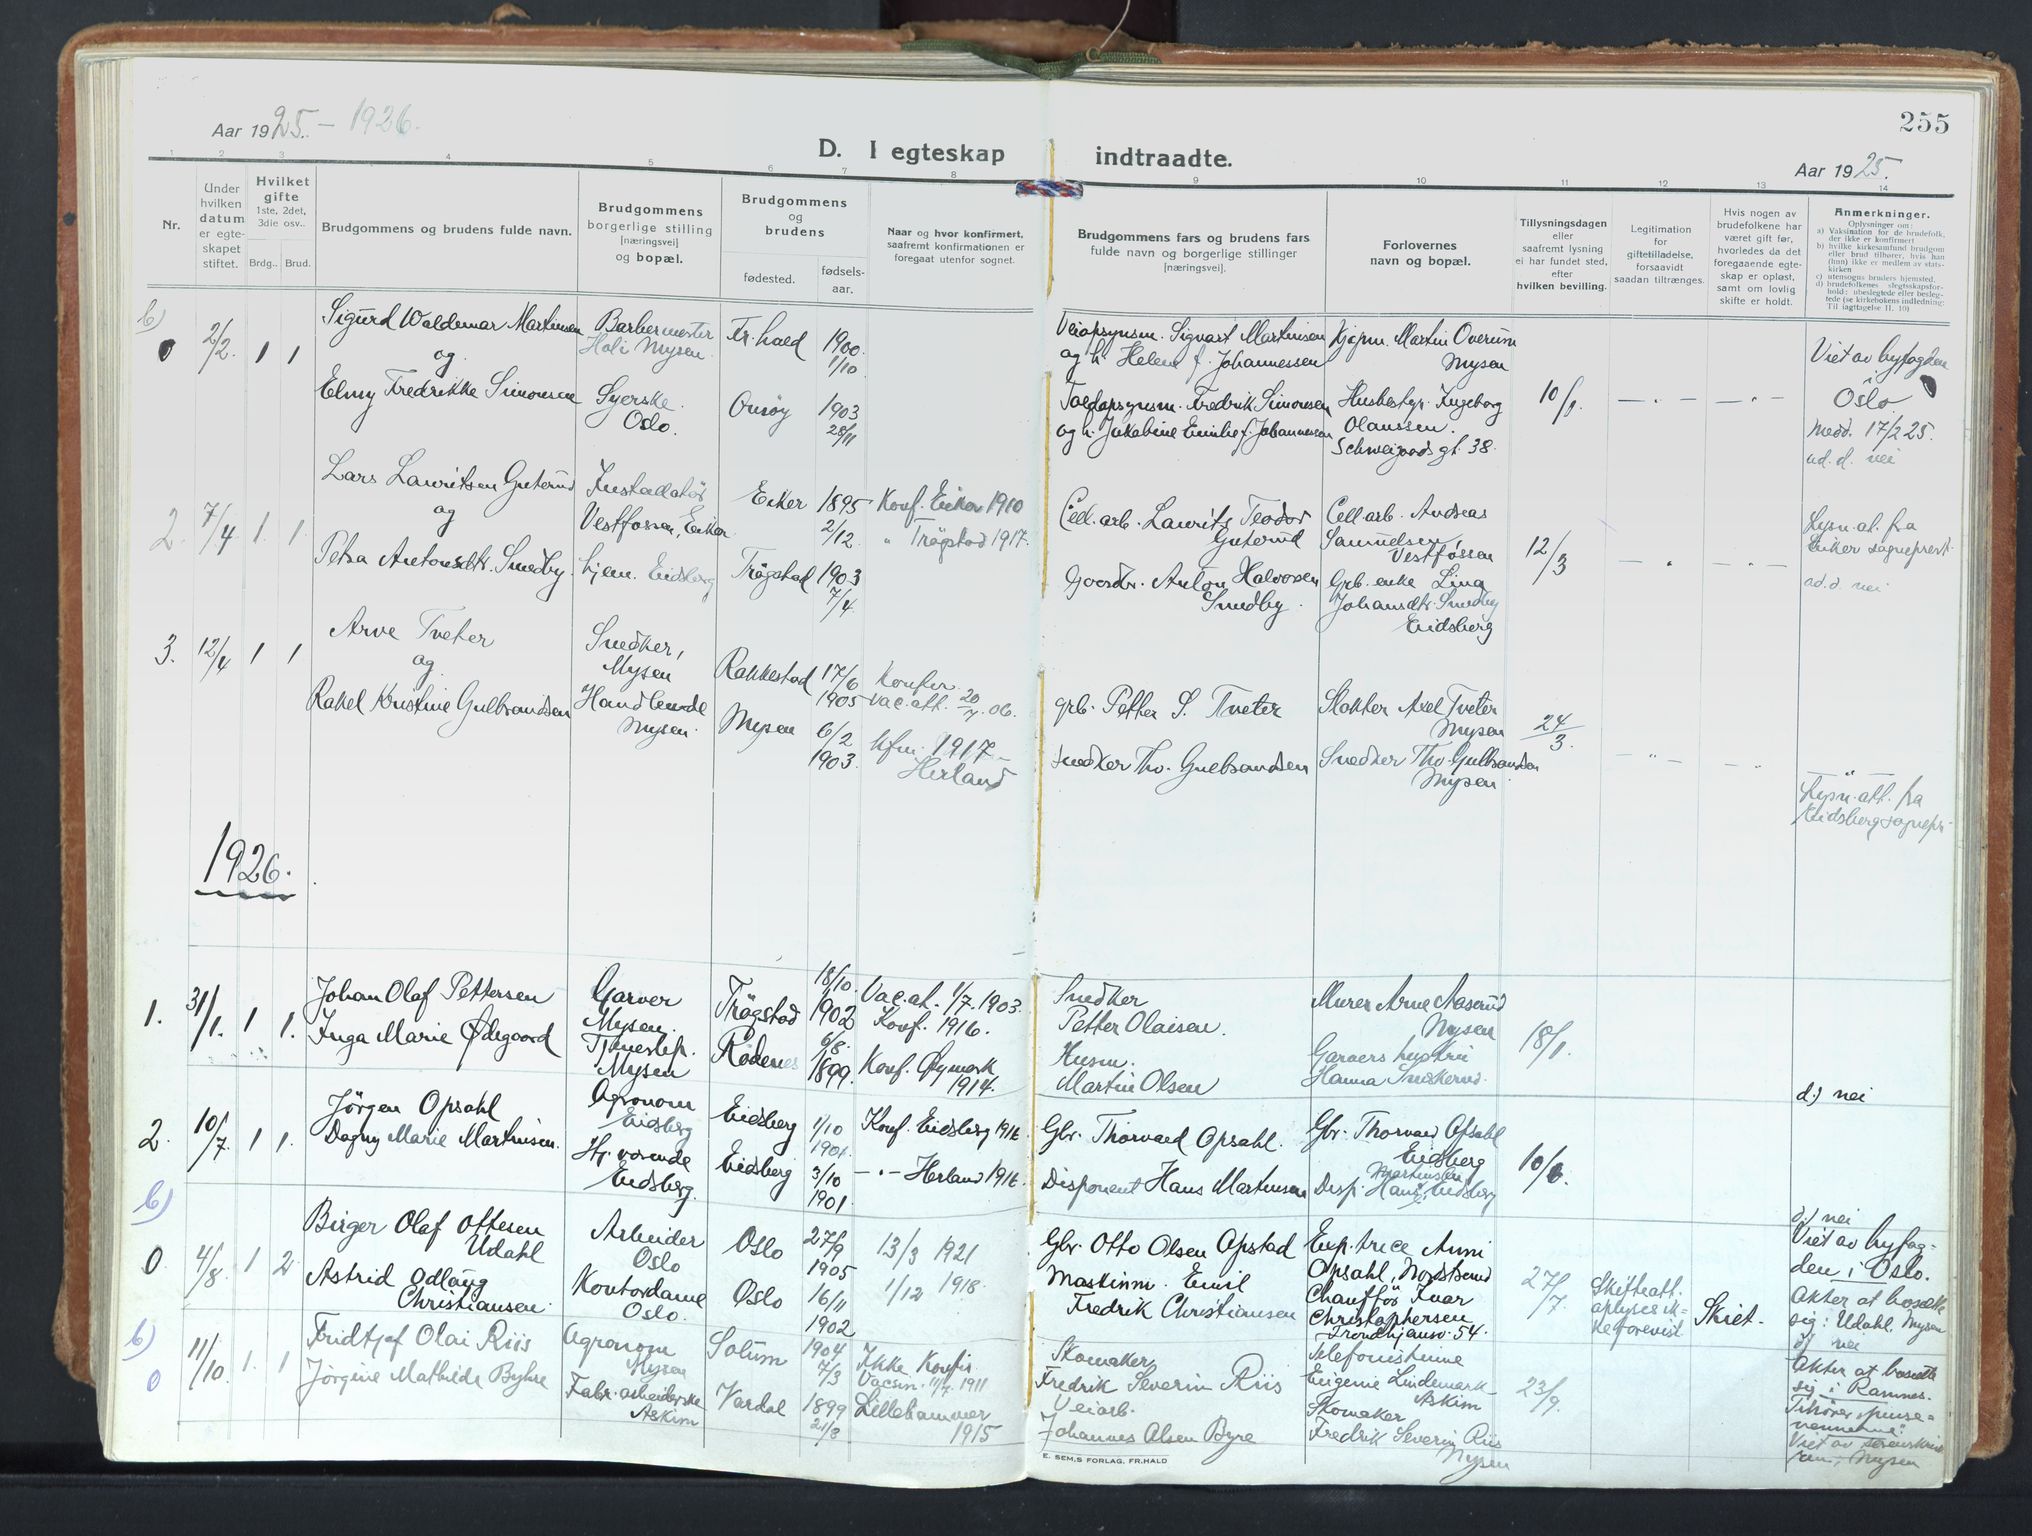 Aar 1925. – 1926.
D. I egteskap indtraadte.
255
Aar 1925.
1 2 3 4 5 6 7 8 9 10 11 12 13 14
Nr.
Under
hvilken
datum
er egte-
skapet
stiftet.
Hvilket
gifte
1ste, 2det,
3die osv..
Brdg.. Brud.
Brudgommens og brudens fulde navn.
Brudgommens
borgerlige stilling
[næringsvei]
og bopæl.
Brudgommens
og
brudens
fødested.
fødsels-
aar.
Naar og hvor konfirmert,
saafremt konfirmationen er
foregaat utenfor sognet.
Brudgommens fars og brudens fars
fulde navn og borgerlige stillinger
[næringsvei].
Forlovernes
navn og bopæl.
Tillysningsdagen
eller
saafremt lysning
ei har fundet sted,
efter
hvilken bevilling.
Legitimation
for
giftetilladelse,
forsaavidt
saadan tiltrænges.
Hvis nogen av
brudefolkene har
været gift før,
hvorledes da det
foregaaende egte-
skap er opløst,
samt om lovlig
skifte er holdt.
Anmerkninger.
Oplysninger om:
a) Vaksination for de brudefolk,
der ikke er konfirmert
b) hvilke kirkesamfund brudgom
eller brud tilhører, hvis han
(hun) ikke er medlem av stats-
kirken
c) utensogns bruders hjemsted.
d) brudefolkenes slegtsskapsfor-
hold: ubeslegtede eller besleg-
tede (se kirkebokens indledning:
Til iagttagelse II. 10)
b)
0 2/2. 1 1
Sigurd Waldemar Martinsen
og
Elmy Fredrikke Simonsen
Barbermester
Mysen.
Syerske.
Oslo.
Fr.hald
Onsøy
1900.
1/10
1903
28/11
Veiopsynsm. Sigvart Martinsen
og h. Helene f. Johannessen
Toldopsynsm. Fredrik Simonsen
og h. Jakobine Emilie f. Johannessen
Kjøpm. Martin Overum
Mysen
Husbestyr. Ingeborg
Olaussen.
Schweigaards gt. 38.
10/1.
Viet av byfogden
Oslo
Medd. 17/2 25.
ad. d. nei
2. 7/4 1. 1.
Lars Lauritsen Guterud
og
Petra Antonsdtr. Smedby.
Installatør
Vestfossen, Eiker
hjem. Eidsberg
Eiker
Trøgstad
1895
2/12
1903
7/4.
Konf. Eiker 1910
" Trøgstad 1917.
Cell. arb. Laurits Teodor
Guterud
Gaardbr. Anton Halvorsen
Smedby.
Cell. arb. Andreas
Samuelsen,
Vestfossen
Grb. enke Lina
Johansdtr. Smedby
Eidsberg
12/3
Lysn. at. fra
Eiker sogneprest.
ad. d. nei
3. 12/4 1 1
Arve Tveter
og
Rakel Kristine Gulbrandsen
Snedker,
Mysen
Handlende
Mysen.
Rakkestad
Mysen
17/6
1905
6/2
1903.
Konfir.
Vac. att. 20/7. 06.
kfm. 1917
Herland
grb. Petter S. Tveter
Snedker Th. Gulbrandsen
Slakter Axel Tveter
Mysen
Snedker Th. Gulbrandsen
Mysen
24/3.
Lysn. att. fra
Eidsberg sognepr.
1926.
1. 31/1. 1 1.
Johan Olaf Pettersen
Inga Marie Ødegaard
Garver
Mysen.
Tjenestep.
Mysen
Trøgstad
Rødenes
18/10
1902
6/8.
1899.
Vac. at. 1/7. 1903.
Konf. 1916.
Konf. Øymark
1914.
Snedker
Petter Olaisen.
Husm.
Martin Olsen
Murer Arne Aaserud
Mysen
Garvers hustru
Hanna
18/1.
d.) nei
2. 10/7. 1 1.
Jørgen Opsahl
Dagny Marie Martinsen.
Agronom
Eidsberg
Hj. værende
Eidsberg.
Eidsberg
Eidsberg
1/10
1901.
3/10
1901
Konf. Eidsberg 1916
– " – Herland 1916.
Gbr. Thorvald Opsahl.
Disponent Hans Martinsen
Gbr. Thorvald Opsahl
Eidsberg
Disp. Hans Martinsen, Eidsberg
10/6.
d) nei
b)
0 4/8. 1 2
Birger Olaf Ottesen
Udahl
Astrid Odlaug
Christiansen.
Arbeider
Oslo
Kontordame
Oslo.
Oslo
Oslo
27/9
1905
16/11
1902
13/3 1921
1/12 1918.
Gbr. Otto Olsen Opstad
Maskinm. Emil
Fredrik Christiansen
Exp.trice Anni
Opsahl, Nordstrand
Chauffør Ivar
Christophersen
Trondhjemsv. 54.
27/7.
Skifteatt.
oplyses ik-
ke forevist
Skilt.
Viet av byfog-
den i Oslo.
Akter at bosætte
sig: Udahl, Mysen
d) nei
b)
0 11/10. 1. 1
Fridtjof Olai Riis
Jørgine Mathilde Byhre
Agronom
Mysen
Fabr.arbeiderske
Askim
Solum
Vardal
1904
7/3
1899
21/8
Ikke Konfir.
Vacsin. 11/7. 1911
Lillehammer
1915
Skomaker
Fredrik Severin Riis
Veiarb.
Johannes Olsen Byre
Telefonistinne
Eugenie Lindemark
Askim
Skomaker
Fredrik Severin Riis
Mysen
23/9.
Akter at bosætte
sig i Ramnes.
Tilhører pinse-
vennerne.
Viet av sorenskrive-
ren, Mysen
E. SEM,S FORLAG, FR.HALD